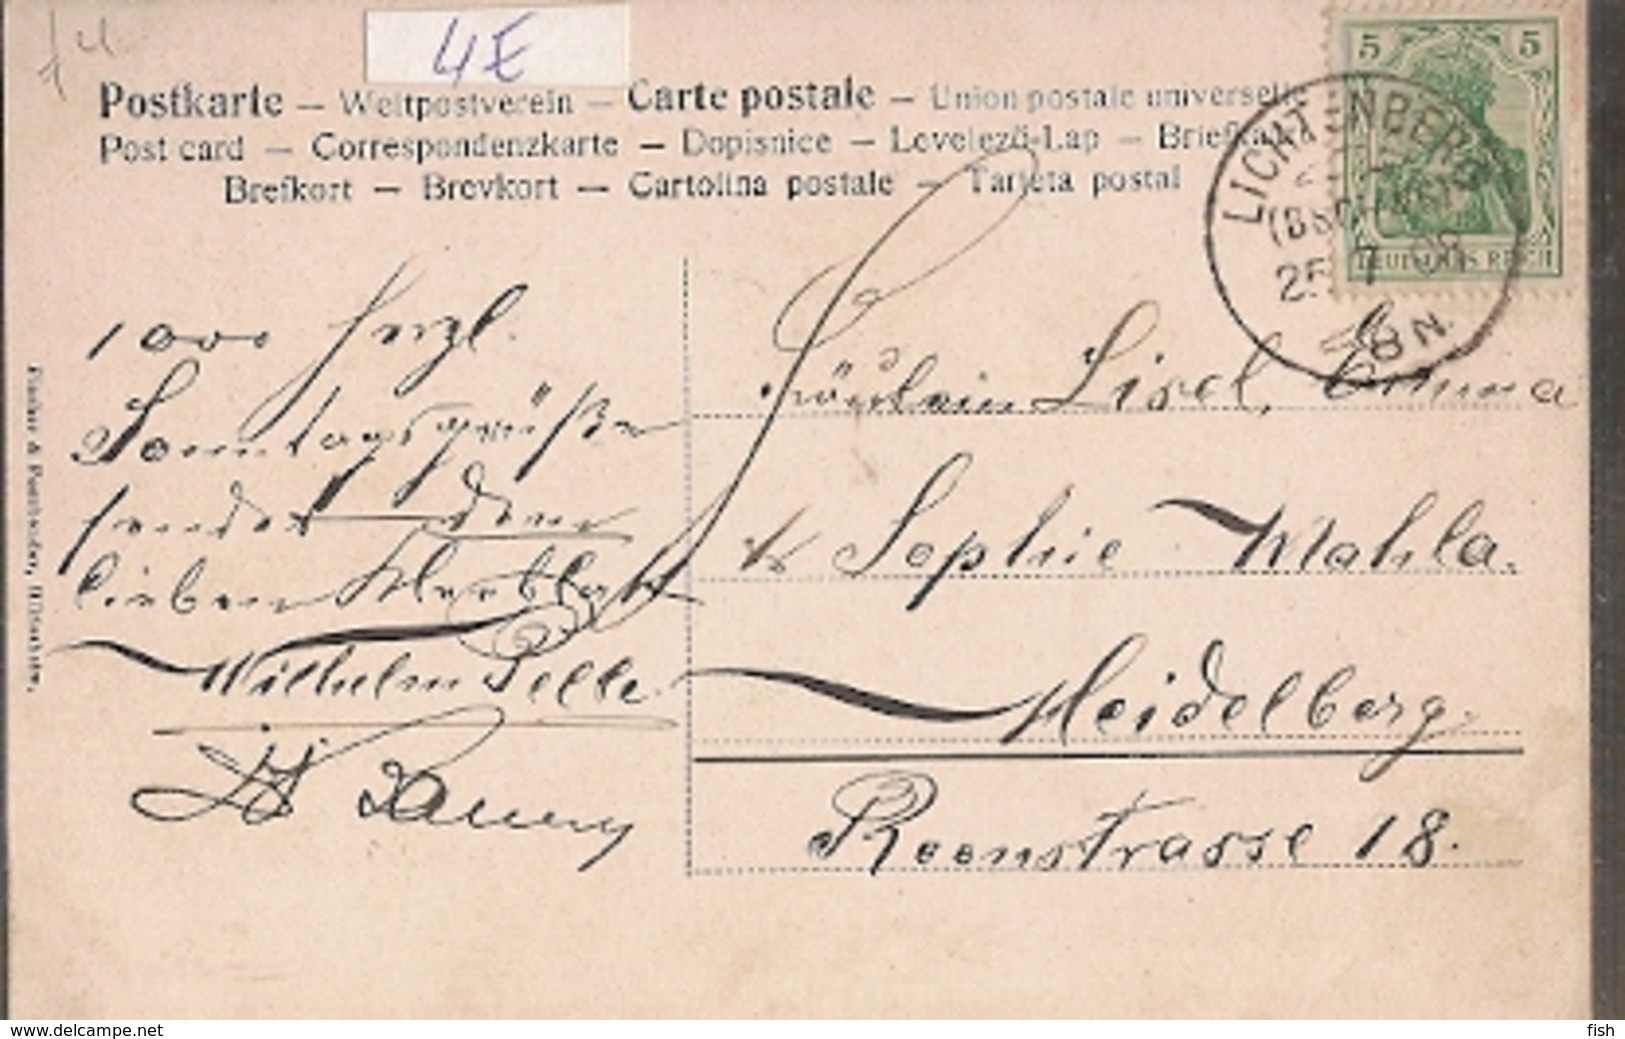 4E
Postkarte — Weltpostverein — Carte postale — Union postale universelle
Post card — Correspondenzkarte — Dopisnice — Levelező-Lap — Briefkaart
Brefkort — Brevkort — Cartolina postale — Tarjeta postal
5 5
DEUTSCHES REICH
LICHTENBERG
25 7
8 N.
1000 herzl.
Sonntagsgrüße
sendet dem
lieben Kleeblatt
Wilhelm Pelle.
Fräulein Lisel, Emma
& Sophie Mahla.
Heidelberg.
18.
www.delcampe.net
fish